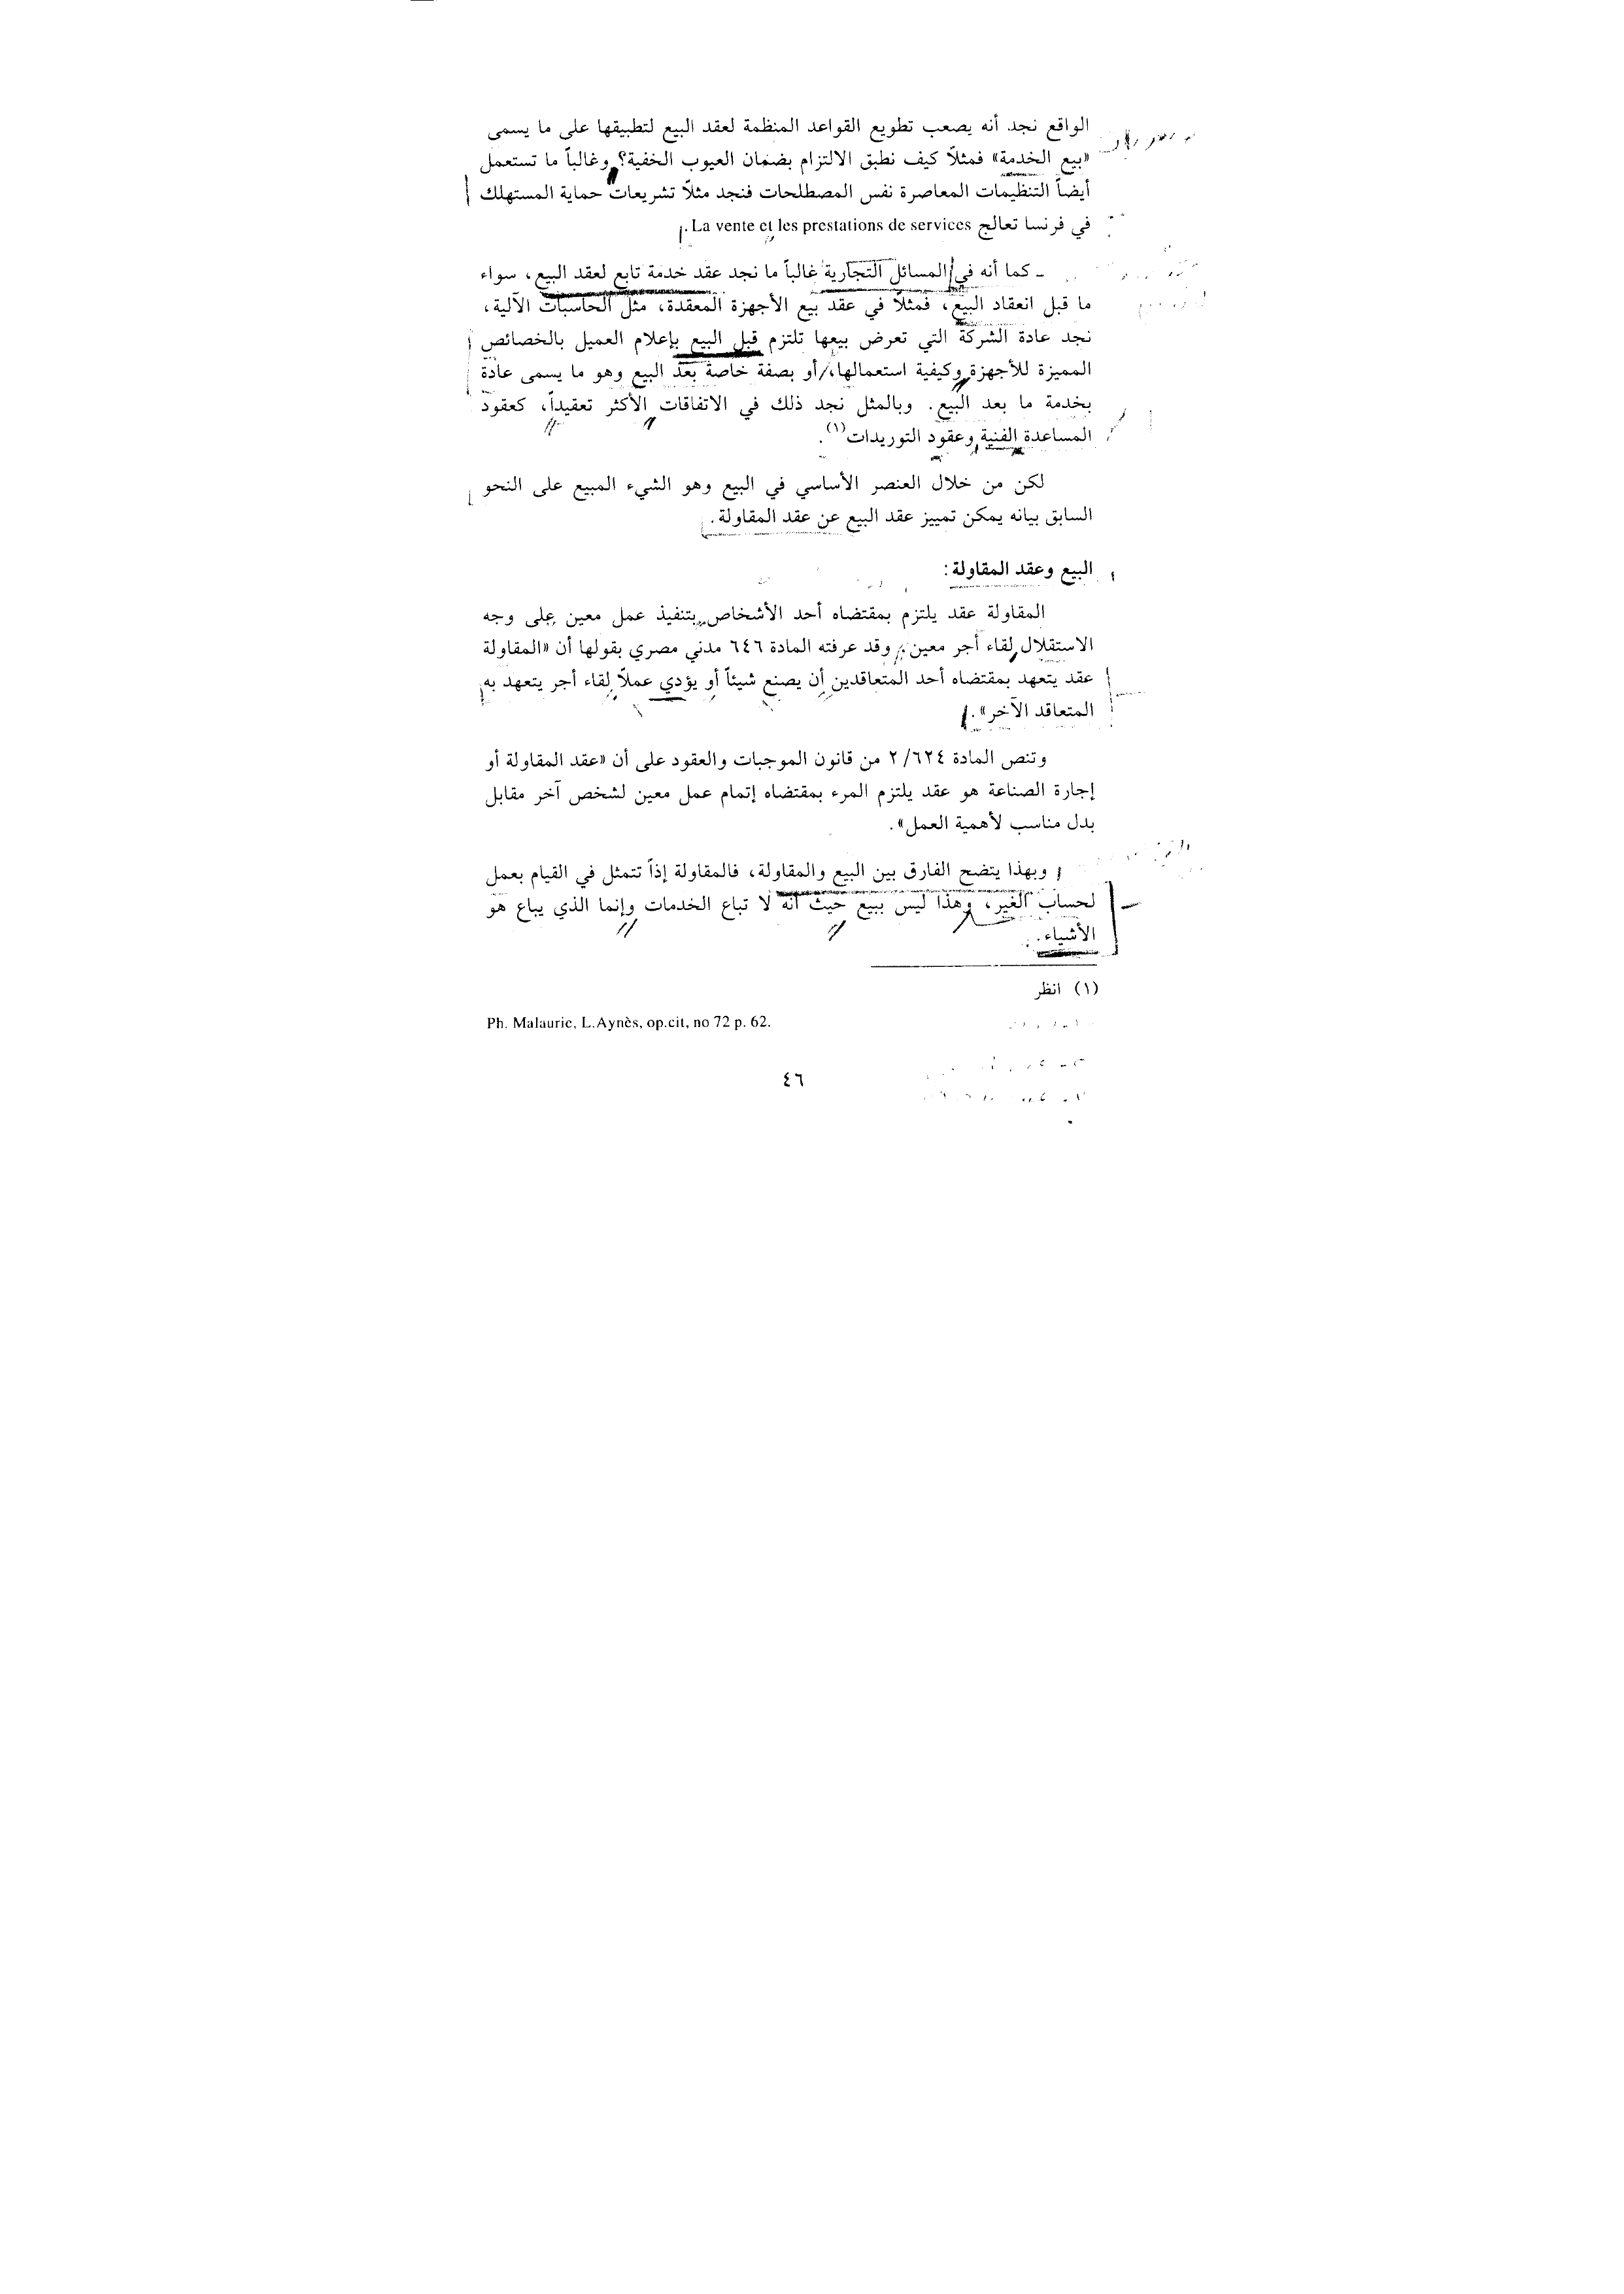 الواقع نجد أنه يصعب تطويع القواعد المنظمة لعقد البيع لتطبيقها على ما يسمى
«بيع الخدمة» فمثلاً كيف نطبق الالتزام بضمان العيوب الخفية؟ وغالباً ما تستعمل
أيضاً التنظيمات المعاصرة نفس المصطلحات فنجد مثلاً تشريعات حماية المستهلك
في فرنسا تعالج La vente et les prestations de services.
ـ كما أنه في المسائل التجارية غالباً ما نجد عقد خدمة تابع لعقد البيع، سواء
ما قبل انعقاد البيع، فمثلاً في عقد بيع الأجهزة المعقدة، مثل الحاسبات الآلية،
نجد عادة الشركة التي تعرض بيعها تلتزم قبل البيع بإعلام العميل بالخصائص
المميزة للأجهزة وكيفية استعمالها، أو بصفة خاصة بعد البيع وهو ما يسمى عادة
بخدمة ما بعد البيع. وبالمثل نجد ذلك في الاتفاقات الأكثر تعقيداً، كعقود
المساعدة الفنية وعقود التوريدات(١).
لكن من خلال العنصر الأساسي في البيع وهو الشيء المبيع على النحو
السابق بيانه يمكن تمييز عقد البيع عن عقد المقاولة.
البيع وعقد المقاولة:
المقاولة عقد يلتزم بمقتضاه أحد الأشخاص بتنفيذ عمل معين على وجه
الاستقلال لقاء أجر معين، وقد عرفته المادة ٦٤٦ مدني مصري بقولها أن «المقاولة
عقد يتعهد بمقتضاه أحد المتعاقدين أن يصنع شيئاً أو يؤدي عملاً لقاء أجر يتعهد به
المتعاقد الآخر».
وتنص المادة ٢/٦٢٤ من قانون الموجبات والعقود على أن «عقد المقاولة أو
إجارة الصناعة هو عقد يلتزم المرء بمقتضاه إتمام عمل معين لشخص آخر مقابل
بدل مناسب لأهمية العمل».
وبهذا يتضح الفارق بين البيع والمقاولة، فالمقاولة إذاً تتمثل في القيام بعمل
لحساب الغير، وهذا ليس ببيع حيث أنه لا تباع الخدمات وإنما الذي يباع هو
الأشياء.
(١) انظر
Ph. Malaurie, L.Aynès, op.cit, no 72 p. 62.
٤٦